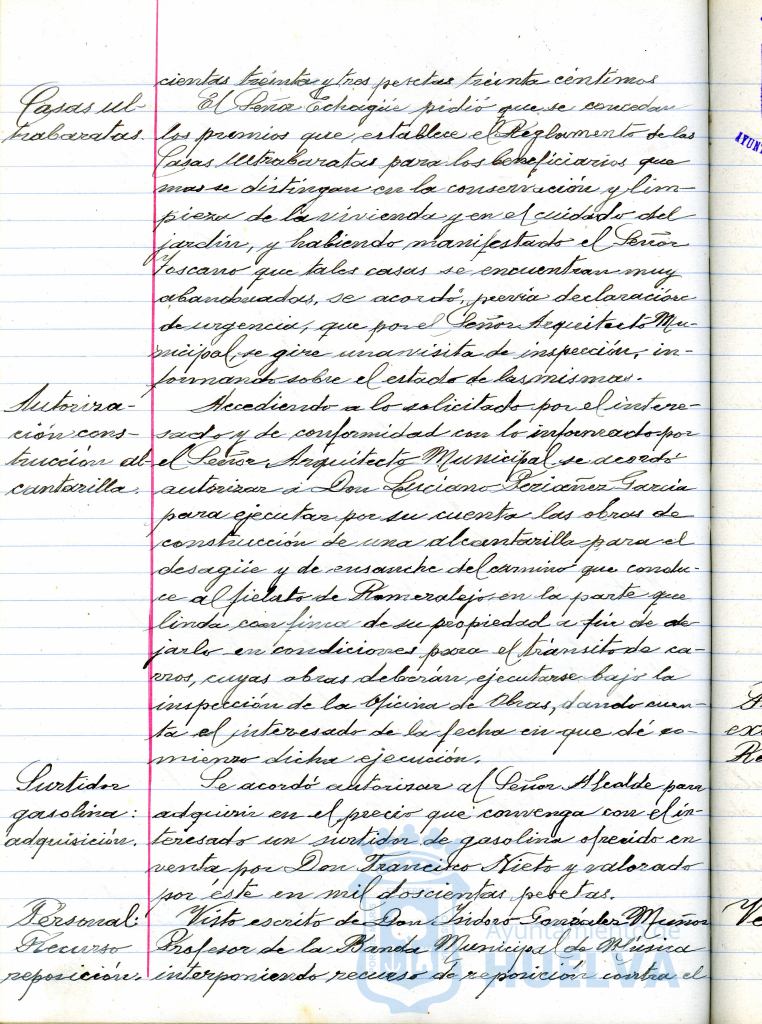 cientas treinta y tres pesetas treinta céntimos
Casas ul-
trabaratas.
El Señor Echagüe pidió que se concedan
los premios que establece el Reglamento de las
Casas Ultrabaratas para los beneficiarios que
mas se distingan en la conservación y lim-
pieza de la vivienda y en el cuidado del
jardín, y habiendo manifestado el Señor
Toscano que tales casas se encuentran muy
abandonadas, se acordó, previa declaración
de urgencia, que por el Señor Arquitecto Mu-
nicipal, se gire una visita de inspección, in-
formando sobre el estado de las mismas.
Autoriza-
ción cons-
trucción al-
cantarilla.
Accediendo a lo solicitado por el intere-
sado y de conformidad con lo informado por
el Señor Arquitecto Municipal se acordó
autorizar a Don Luciano Periañez García
para ejecutar por su cuenta las obras de
construcción de una alcantarilla para el
desagüe y de ensanche del camino que condu-
ce al fielato de Romeralejo en la parte que
linda con finca de su propiedad a fin de de
jarlo en condiciones para el tránsito de ca-
rros, cuyas obras deberán ejecutarse bajo la
inspección de la Oficina de Obras, dando cuen-
ta el interesado de la fecha en que dé co-
mienzo dicha ejecución.
Surtidor
gasolina:
adquisición.
Se acordó autorizar al Señor Alcalde para
adquirir en el precio que convenga con el in-
teresado un surtidor de gasolina ofrecido en
venta por Don Francisco Nieto y valorado
por éste en mil doscientas pesetas.
Personal:
Recurso
reposición.
Visto escrito de Don Isidoro González Muñoz
Profesor de la Banda Municipal de Música
interponiendo recurso de reposición contra el
Ayuntamiento de
HUELVA